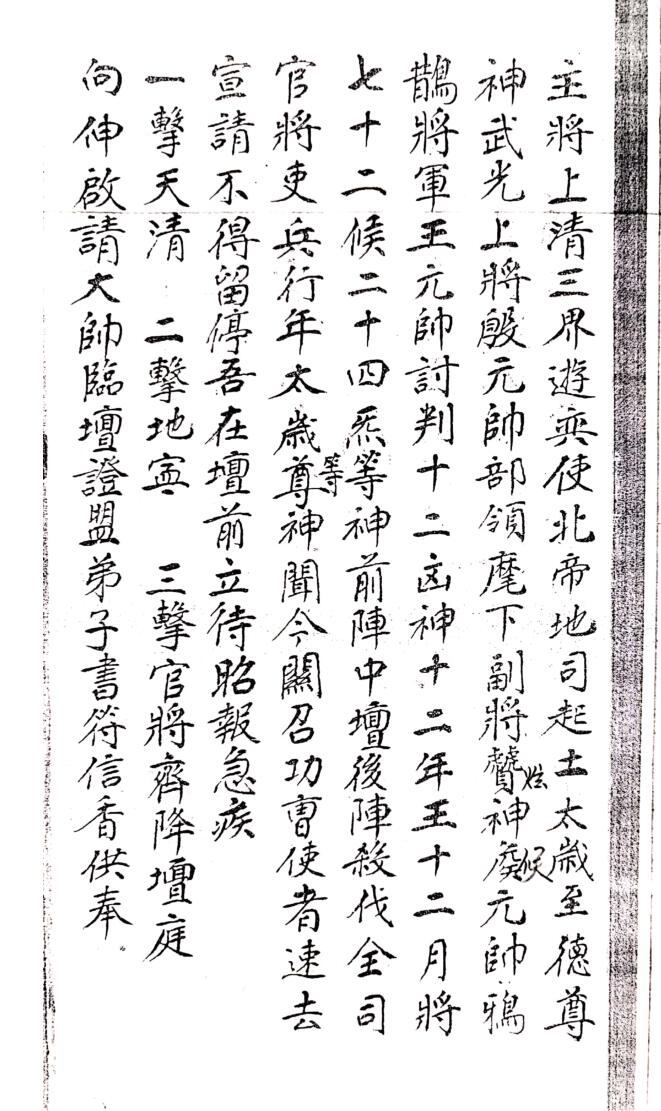 主將上清三界遊奕使北帝地司起土太歲至德尊
神武光上將殷元帥部領麾下副將鷟神侯元帥鴉
鵲將軍王元帥討判十二凶神十二年王十二月將
七十二候二十四炁等神前陣中壇後陣殺伐全司
官將吏兵行年太歲尊等神聞今關召功曹使者速去
宣請不得留停吾在壇前立待昭報急疾
一擊天清 二擊地寧 三擊官將齊降壇庭
向伸啟請大帥臨壇證盟弟子書符信香供奉